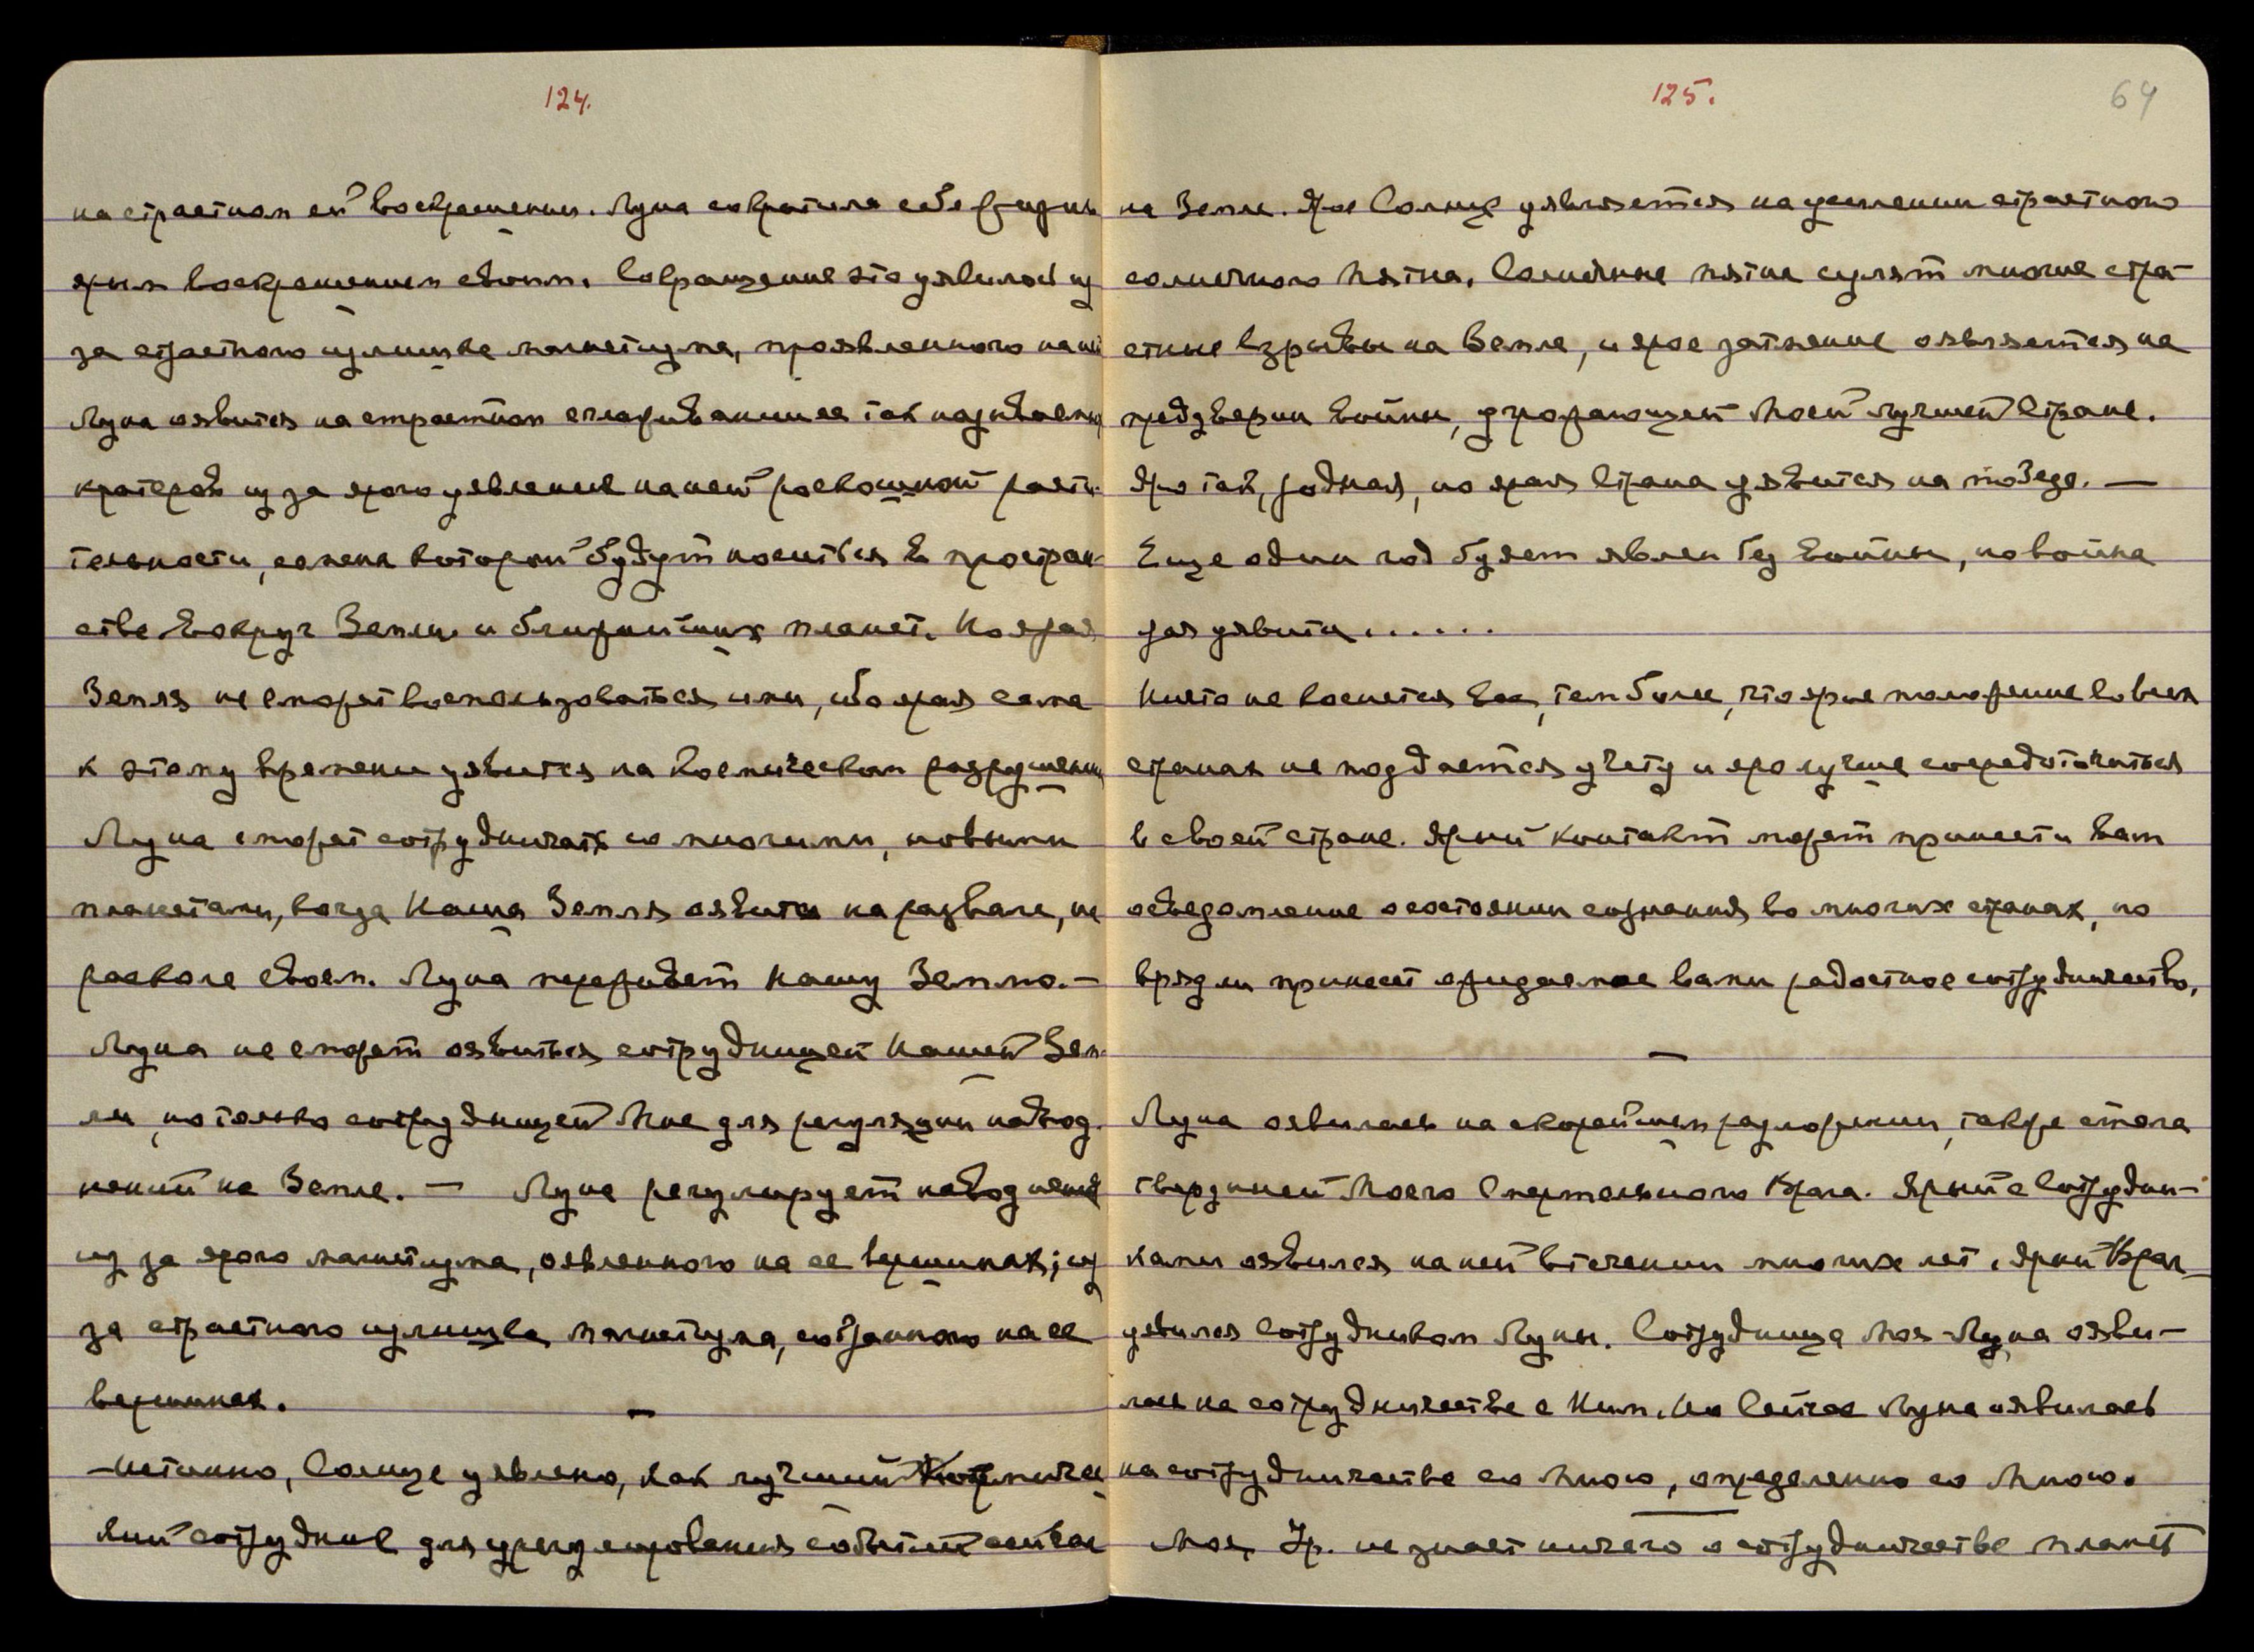 124.
на страстном ей воскрешении. Луна сократила себе жизнь
ярым воскрешением своим. Сокращение это уявилось из
за страстного излишка магнетизма, проявленного на ней
Луна оявится на страстном сглаживании ее так называемых
кратеров из за ярого уявления на ней роскошной расти-
тельности, семена которой будут носиться в простран-
стве вокруг Земли и ближайших планет. Но ярая
Земля не сможет воспользоваться ими, ибо ярая сама
к этому времени уявится на космическом разрушении
Луна сможет сотрудничать со многими, новыми
планетами, когда Наша Земля оявится на развале, на
расколе своем. Луна переживет Нашу Землю. —
Луна не сможет оявиться сотрудницей Нашей Зем-
ли, но только сотрудницей Мне для регуляции навод-
нений на Земле. — Луна регулирует наводнения
из за ярого магнетизма, оявленного на ее вершинах; из
за страстного излишка магнетизма, собранного на ее
вершинах.
—
— Истинно, Солнце уявлено, как лучший Космичес
кий сотрудник для урегулирования событий сейчас
125.
64
на Земле. Ярое Солнце уявляется на усилении страстного
солнечного пятна. Солнечные пятна сулят многие стра-
стные взрывы на Земле, и ярое затмение оявляется на
предверии войны, угрожающей Моей лучшей Стране.
Яро так, родная, но ярая Страна уявится на победе. —
Еще один год будет явлен без войны, но война
уявится......
Никто не коснется Вас, тем более, что ярое положение во всех
странах не поддается учету и яро лучше сосредоточиться
в своей стране. Ярый контакт может принести вам
осведомление о состоянии сознания во многих странах, но
вряд ли принесет ожидаемое вами радостное сотрудничество.
—
Луна оявилась на скорейшем разложении, также стала
твердыней Моего Смертельного Врага. Ярый с Сотрудни-
ками оявился на ней в течении многих лет. Ярый Враг
уявился Сотрудником Луны. Сотрудница Моя — Луна ояви-
лась на сотрудничестве с Ним. Но Сейчас Луна оявилась
на сотрудничестве со Мною, определенно со Мною.
—
Моя Ур. не знает ничего о сотрудничестве планет